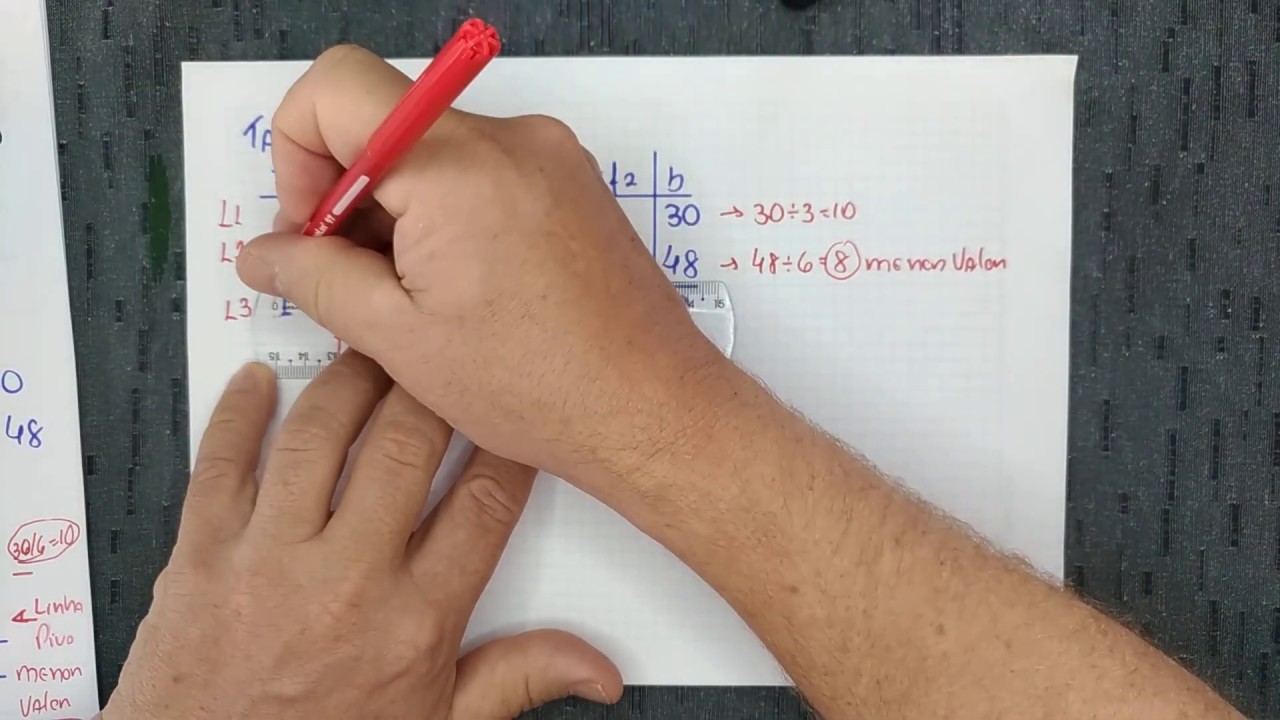 TA
f2 b
L1 30 → 30÷3=10
L2 48 → 48÷6=8 menor Valor
L3
0
48
30/6=10
Linha
Pivo
menor
Valor